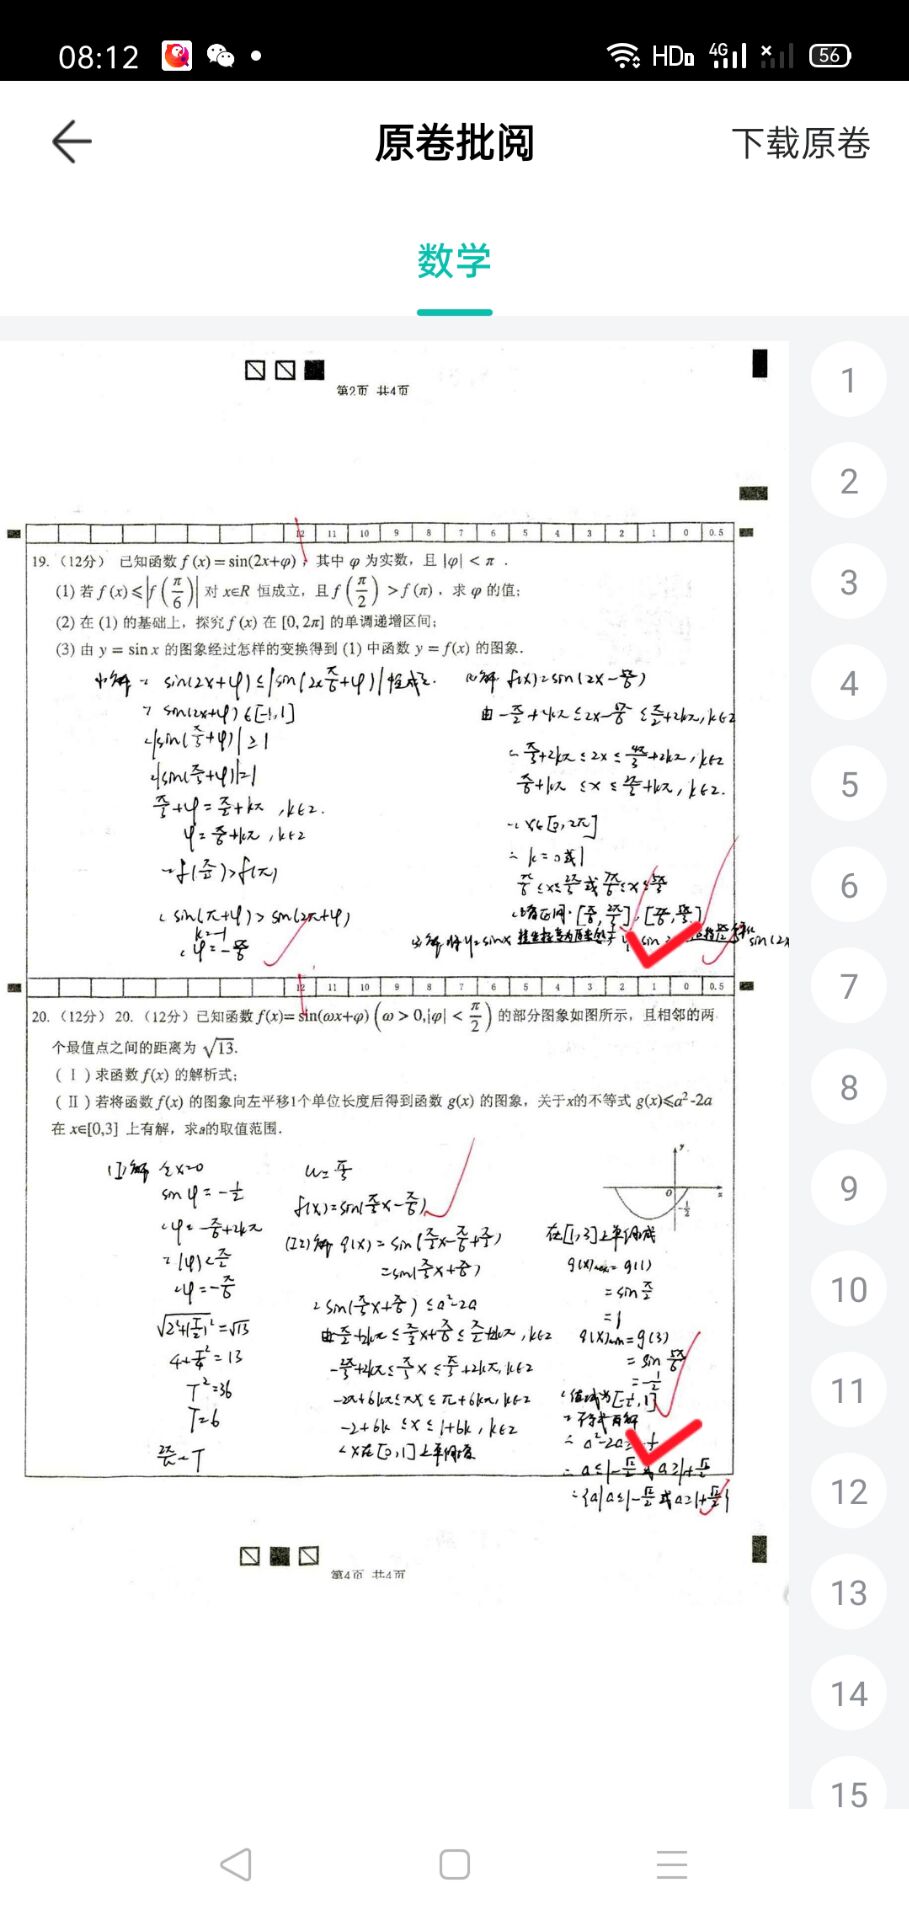 08:12
HD
4G
56
原卷批阅
下载原卷
数学
1
2
3
4
5
6
7
8
9
10
11
12
13
14
15
第2页 共4页
12 11 10 9 8 7 6 5 4 3 2 1 0 0.5
19. (12分) 已知函数 f(x)=sin(2x+φ), 其中 φ 为实数, 且 |φ|<π.
(1) 若 f(x)⩽|f(π/6)| 对 x∈R 恒成立, 且 f(π/2)>f(π), 求 φ 的值;
(2) 在 (1) 的基础上, 探究 f(x) 在 [0, 2π] 的单调递增区间;
(3) 由 y=sin x 的图象经过怎样的变换得到 (1) 中函数 y=f(x) 的图象.
sin(2x+φ)≤|sin(2×π/6+φ)|恒成立.
∵ sin(2x+φ)∈[-1,1]
∴|sin(π/3+φ)|≥1
∴|sin(π/3+φ)|=1
π/3+φ=π/2+kπ, k∈Z.
φ=π/6+kπ, k∈Z
∵f(π/2)>f(π)
∴ sin(π+φ)>sin(2π+φ)
k=-1
∴φ=-5π/6
解 f(x)=sin(2x-5π/6)
由-π/2+2kπ≤2x-5π/6≤π/2+2kπ, k∈Z
∴π/3+2kπ≤2x≤4π/3+2kπ, k∈Z
π/6+kπ≤x≤2π/3+kπ, k∈Z.
∵x∈[0,2π]
∴k=0或1
π/6≤x≤2π/3或7π/6≤x≤5π/3
12 11 10 9 8 7 6 5 4 3 2 1 0 0.5
20. (12分) 20. (12分) 已知函数 f(x)=sin(ωx+φ)(ω>0,|φ|<π/2) 的部分图象如图所示, 且相邻的两
个最值点之间的距离为 √13.
(Ⅰ) 求函数 f(x) 的解析式;
(Ⅱ) 若将函数 f(x) 的图象向左平移1个单位长度后得到函数 g(x) 的图象, 关于x的不等式 g(x)⩽a²-2a
在 x∈[0,3] 上有解, 求a的取值范围.
解 令x=0
sinφ=-1/2
∴φ=-π/6+2kπ
∵|φ|<π/2
∴φ=-π/6
√(2²+(T/2)²)=√13
4+T²/4=13
T²=36
T=6
2π/ω=T
ω=π/3
f(x)=sin(π/3x-π/6)
解 g(x)=sin(π/3x-π/6+π/3)
=sin(π/3x+π/6)
∴sin(π/3x+π/6)≤a²-2a
由-π/2+2kπ≤π/3x+π/6≤π/2+2kπ, k∈Z
-2π/3+2kπ≤π/3x≤π/3+2kπ, k∈Z
-2π+6kπ≤πx≤π+6kπ, k∈Z
-2+6k≤x≤1+6k, k∈Z
∴x在[0,1]上单增
y
0
x
-1/2
在[1,3]上单减
g(x)max=g(1)
=sinπ/2
=1
g(x)min=g(3)
=sin 7π/6
=-1/2
∴值域为[-1/2,1]
∵不等式有解
∴a≤1-√2/2或a≥1+√2/2
∴{a|a≤1-√2/2或a≥1+√2/2}
第4页 共4页